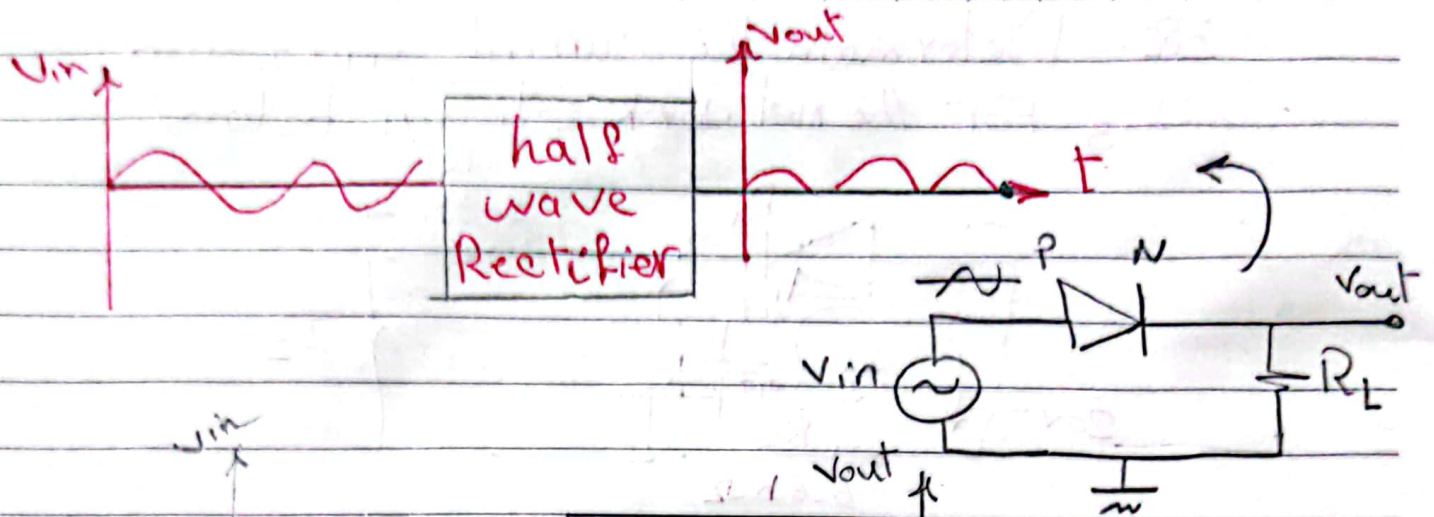 Vout
Vin
half
wave
Rectifier
t
P N
Vout
Vin
RL
Vin
Vout